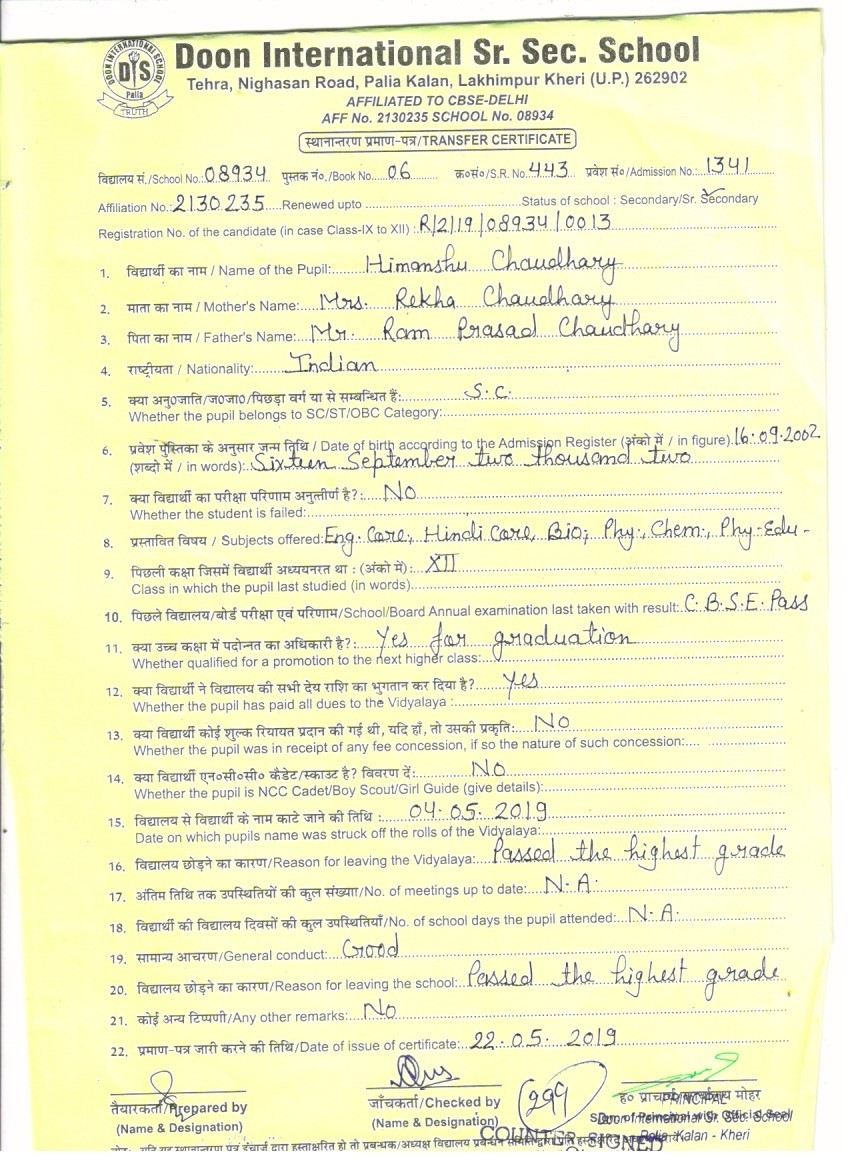 DOON INTERNATIONAL SCHOOL
DIS
Palia
TRUTH
Doon International Sr. Sec. School
Tehra, Nighasan Road, Palia Kalan, Lakhimpur Kheri (U.P.) 262902
AFFILIATED TO CBSE-DELHI
AFF No. 2130235 SCHOOL No. 08934
स्थानान्तरण प्रमाण-पत्र/TRANSFER CERTIFICATE
विद्यालय सं./School No.: 08934 पुस्तक नं०./Book No. 06 क्र०सं०/S.R. No. 443 प्रवेश सं०/Admission No.: 1341
Affiliation No.: 2130235 Renewed upto Status of school : Secondary/Sr. Secondary
Registration No. of the candidate (in case Class-IX to XII) : R/2/19/08934/0013
1. विद्यार्थी का नाम / Name of the Pupil: Himanshu Chaudhary
2. माता का नाम / Mother's Name: Mrs. Rekha Chaudhary
3. पिता का नाम / Father's Name: Mr. Ram Prasad Chaudhary
4. राष्ट्रीयता / Nationality: Indian
5. क्या अनु0जाति/ज0जा0/पिछड़ा वर्ग या से सम्बन्धित हैः S.C.
Whether the pupil belongs to SC/ST/OBC Category:
6. प्रवेश पुस्तिका के अनुसार जन्म तिथि / Date of birth according to the Admission Register (अंको में / in figure). 16.09.2002
(शब्दो में / in words): Sixteen September two thousand two
7. क्या विद्यार्थी का परीक्षा परिणाम अनुत्तीर्ण है?: No
Whether the student is failed:
8. प्रस्तावित विषय / Subjects offered: Eng. Core, Hindi Core, Bio, Phy., Chem., Phy-Edu-
9. पिछली कक्षा जिसमें विद्यार्थी अध्ययनरत था : (अंको में): XII
Class in which the pupil last studied (in words)
10. पिछले विद्यालय/बोर्ड परीक्षा एवं परिणाम/School/Board Annual examination last taken with result: C.B.S.E. Pass
11. क्या उच्च कक्षा में पदोन्नत का अधिकारी है?: Yes for graduation
Whether qualified for a promotion to the next higher class:
12. क्या विद्यार्थी ने विद्यालय की सभी देय राशि का भुगतान कर दिया है? Yes
Whether the pupil has paid all dues to the Vidyalaya :
13. क्या विद्यार्थी कोई शुल्क रियायत प्रदान की गई थी, यदि हाँ, तो उसकी प्रकृति: No
Whether the pupil was in receipt of any fee concession, if so the nature of such concession:
14. क्या विद्यार्थी एन०सी०सी० कैडेट/स्काउट है? विवरण दें: No
Whether the pupil is NCC Cadet/Boy Scout/Girl Guide (give details):
15. विद्यालय से विद्यार्थी के नाम काटे जाने की तिथि : 04.05.2019
Date on which pupils name was struck off the rolls of the Vidyalaya:
16. विद्यालय छोड़ने का कारण/Reason for leaving the Vidyalaya: Passed the highest grade
17. अंतिम तिथि तक उपस्थितियों की कुल संख्या/No. of meetings up to date: N.A.
18. विद्यार्थी की विद्यालय दिवसों की कुल उपस्थितियाँ/No. of school days the pupil attended: N.A.
19. सामान्य आचरण/General conduct: Good
20. विद्यालय छोड़ने का कारण/Reason for leaving the school: Passed the highest grade
21. कोई अन्य टिप्पणी/Any other remarks: No
22. प्रमाण-पत्र जारी करने की तिथि/Date of issue of certificate: 22.05.2019
तैयारकर्ता/Prepared by जाँचकर्ता/Checked by (299) ह० प्राचार्य मोहर
PRINCIPAL
(Name & Designation) (Name & Designation) Sign of Principal with Official Seal
Doon International Sr. Sec. School
Palia Kalan - Kheri
नोट:- यदि यह स्थानान्तरण पत्र इंचार्ज द्वारा हस्ताक्षरित हो तो प्रबन्धक/अध्यक्ष विद्यालय प्रबन्धन
COUNTER SIGNED